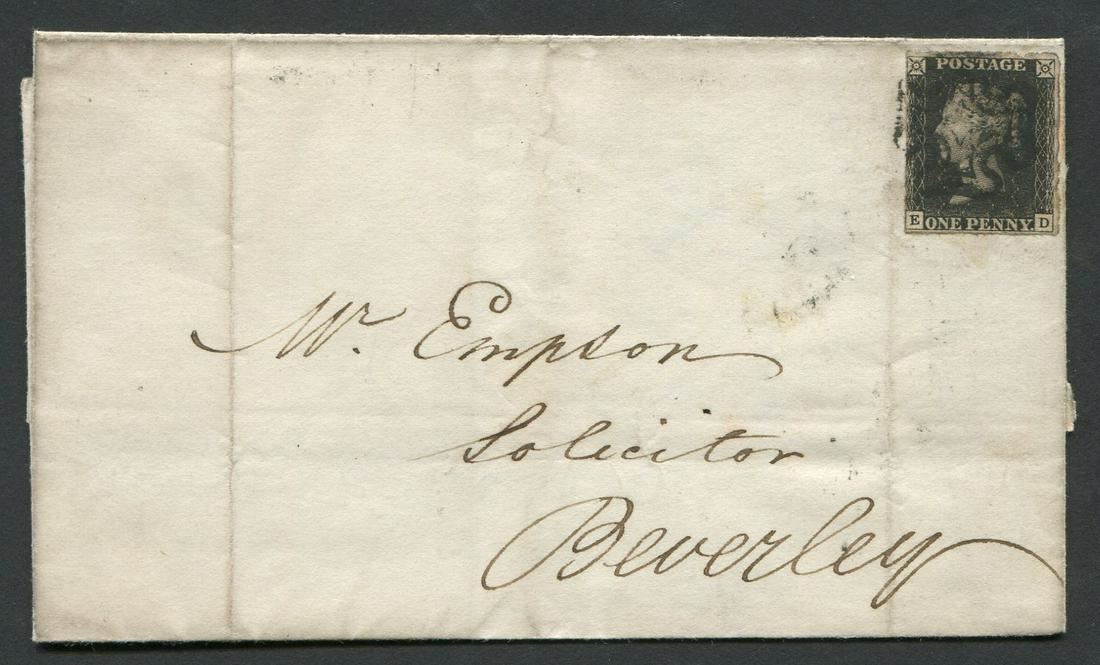 POSTAGE
E ONE PENNY. D
Mr. Empson
Solicitor
Beverley